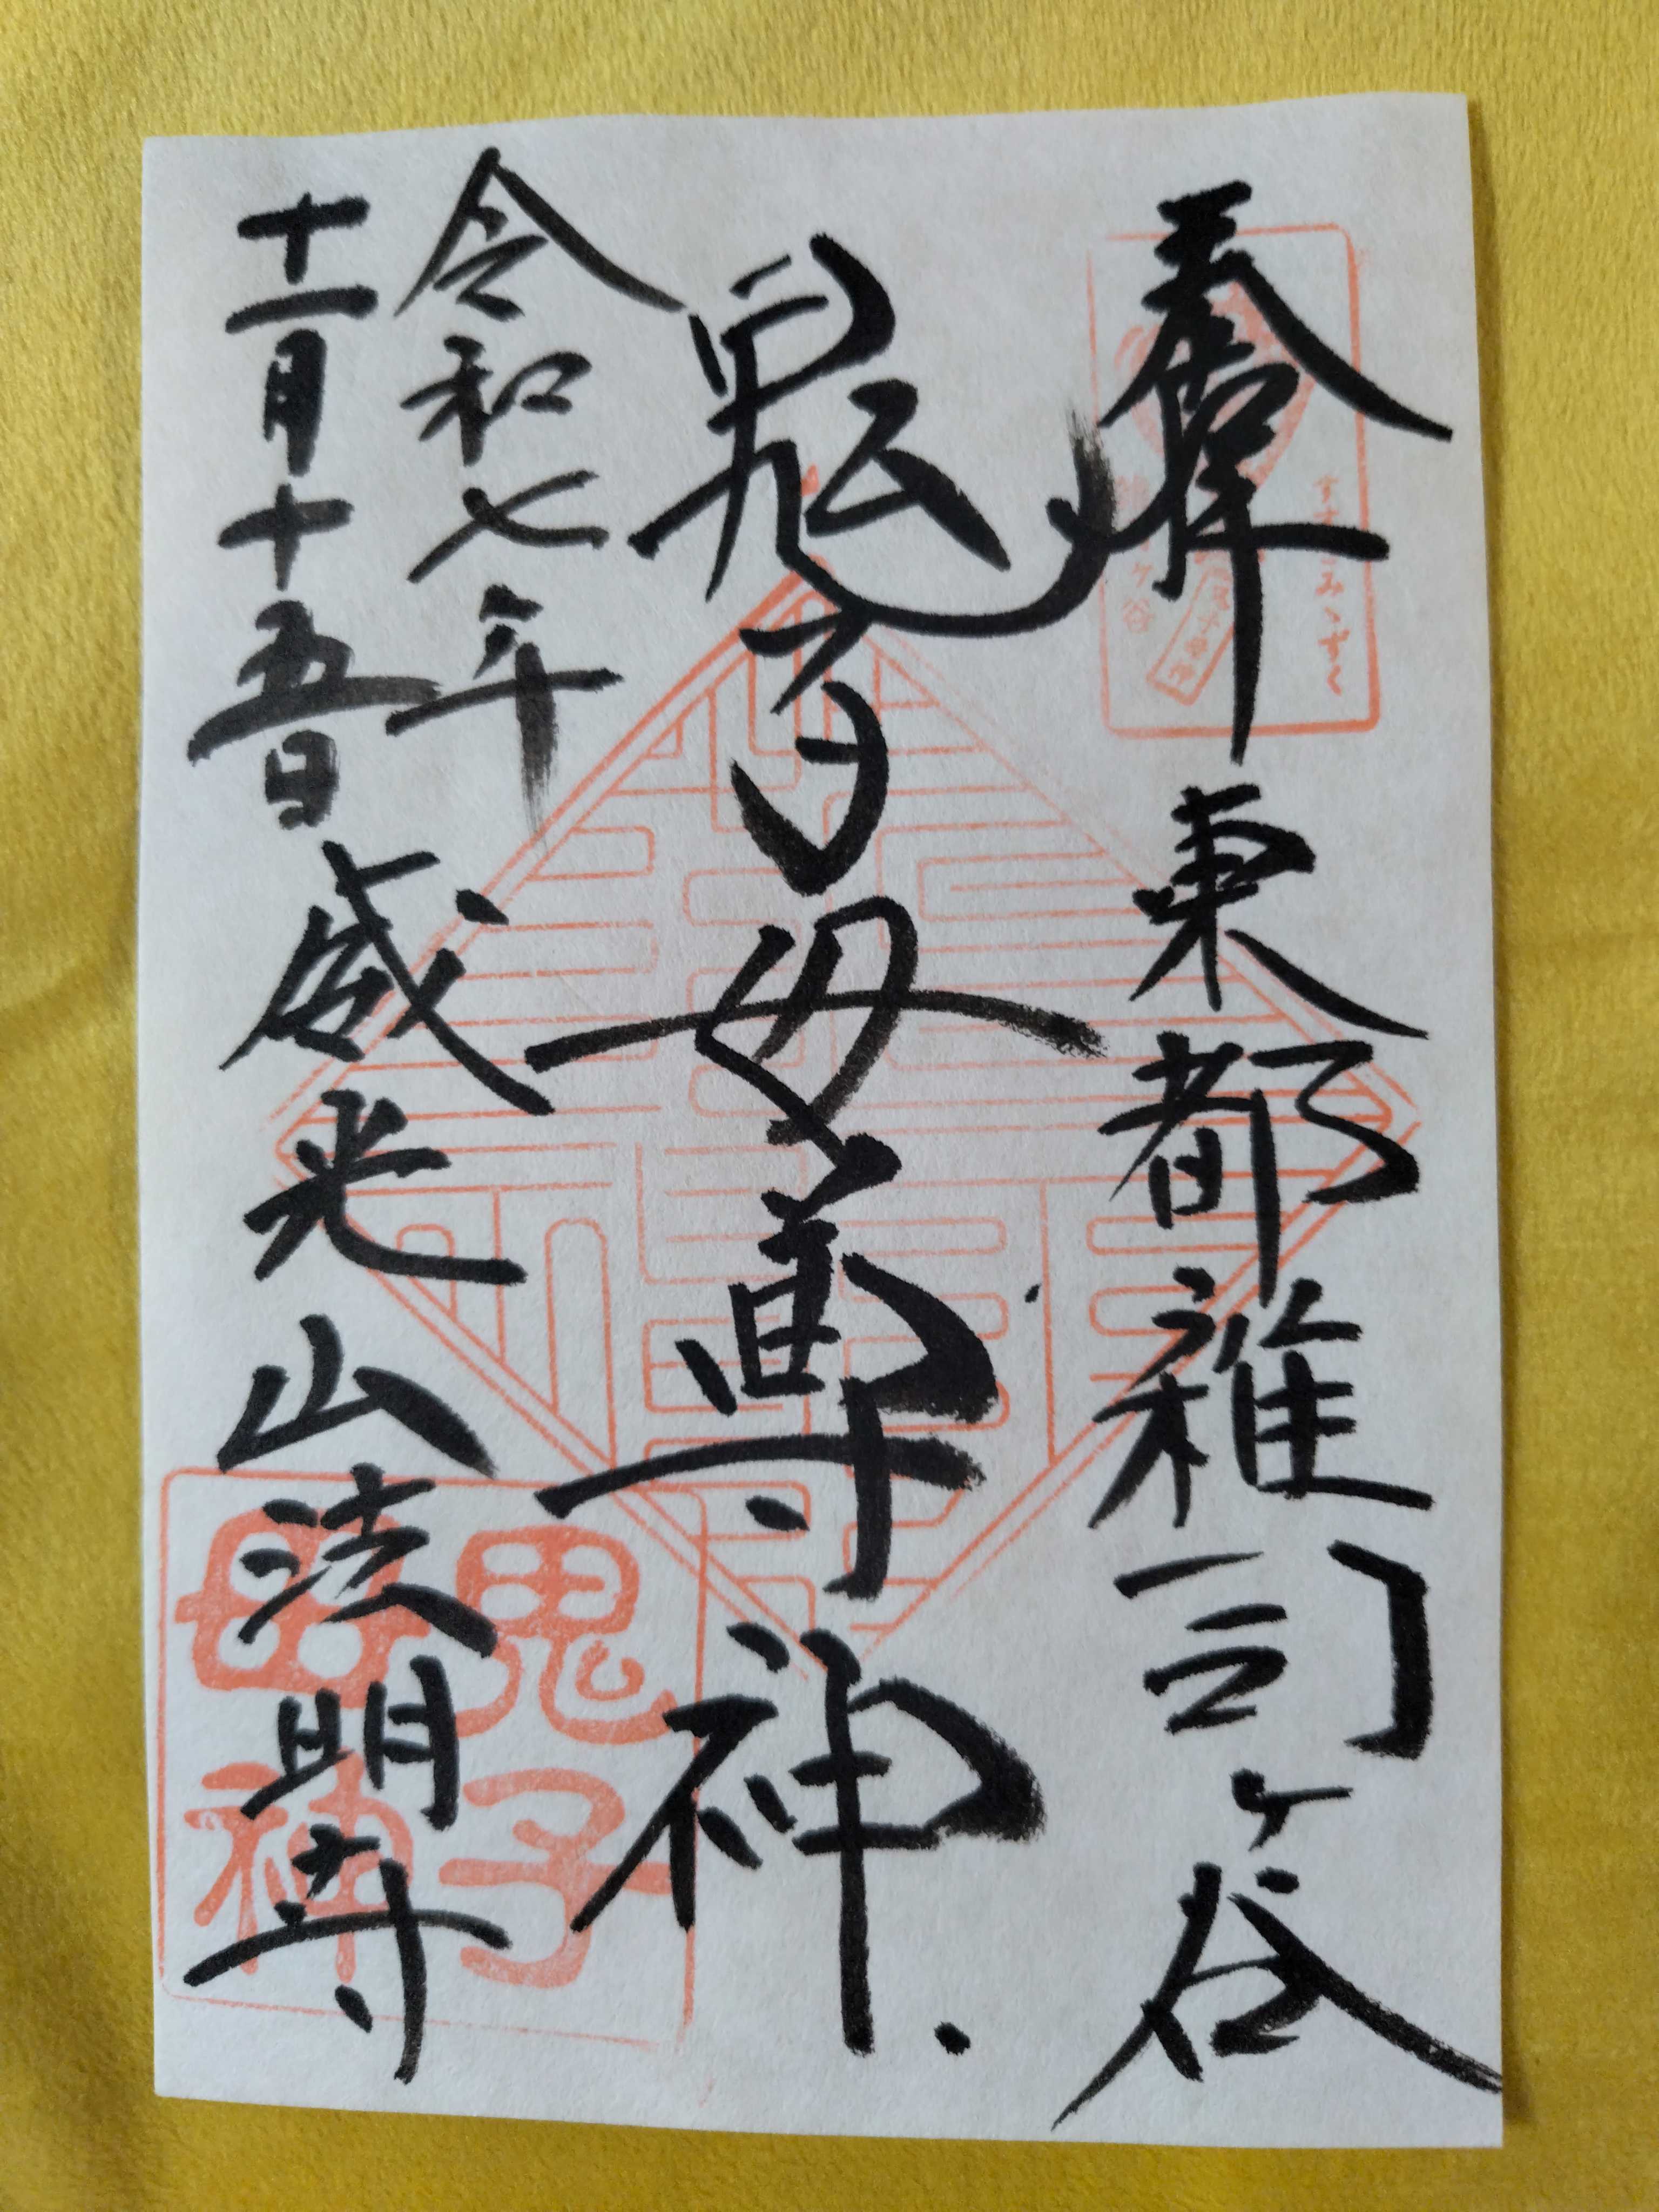 奉拝 東都雑司ヶ谷
鬼子母尊神
令和七年
十一月十五日 威光山法明寺
すすきみゝずく
ヶ谷
鬼子
母神